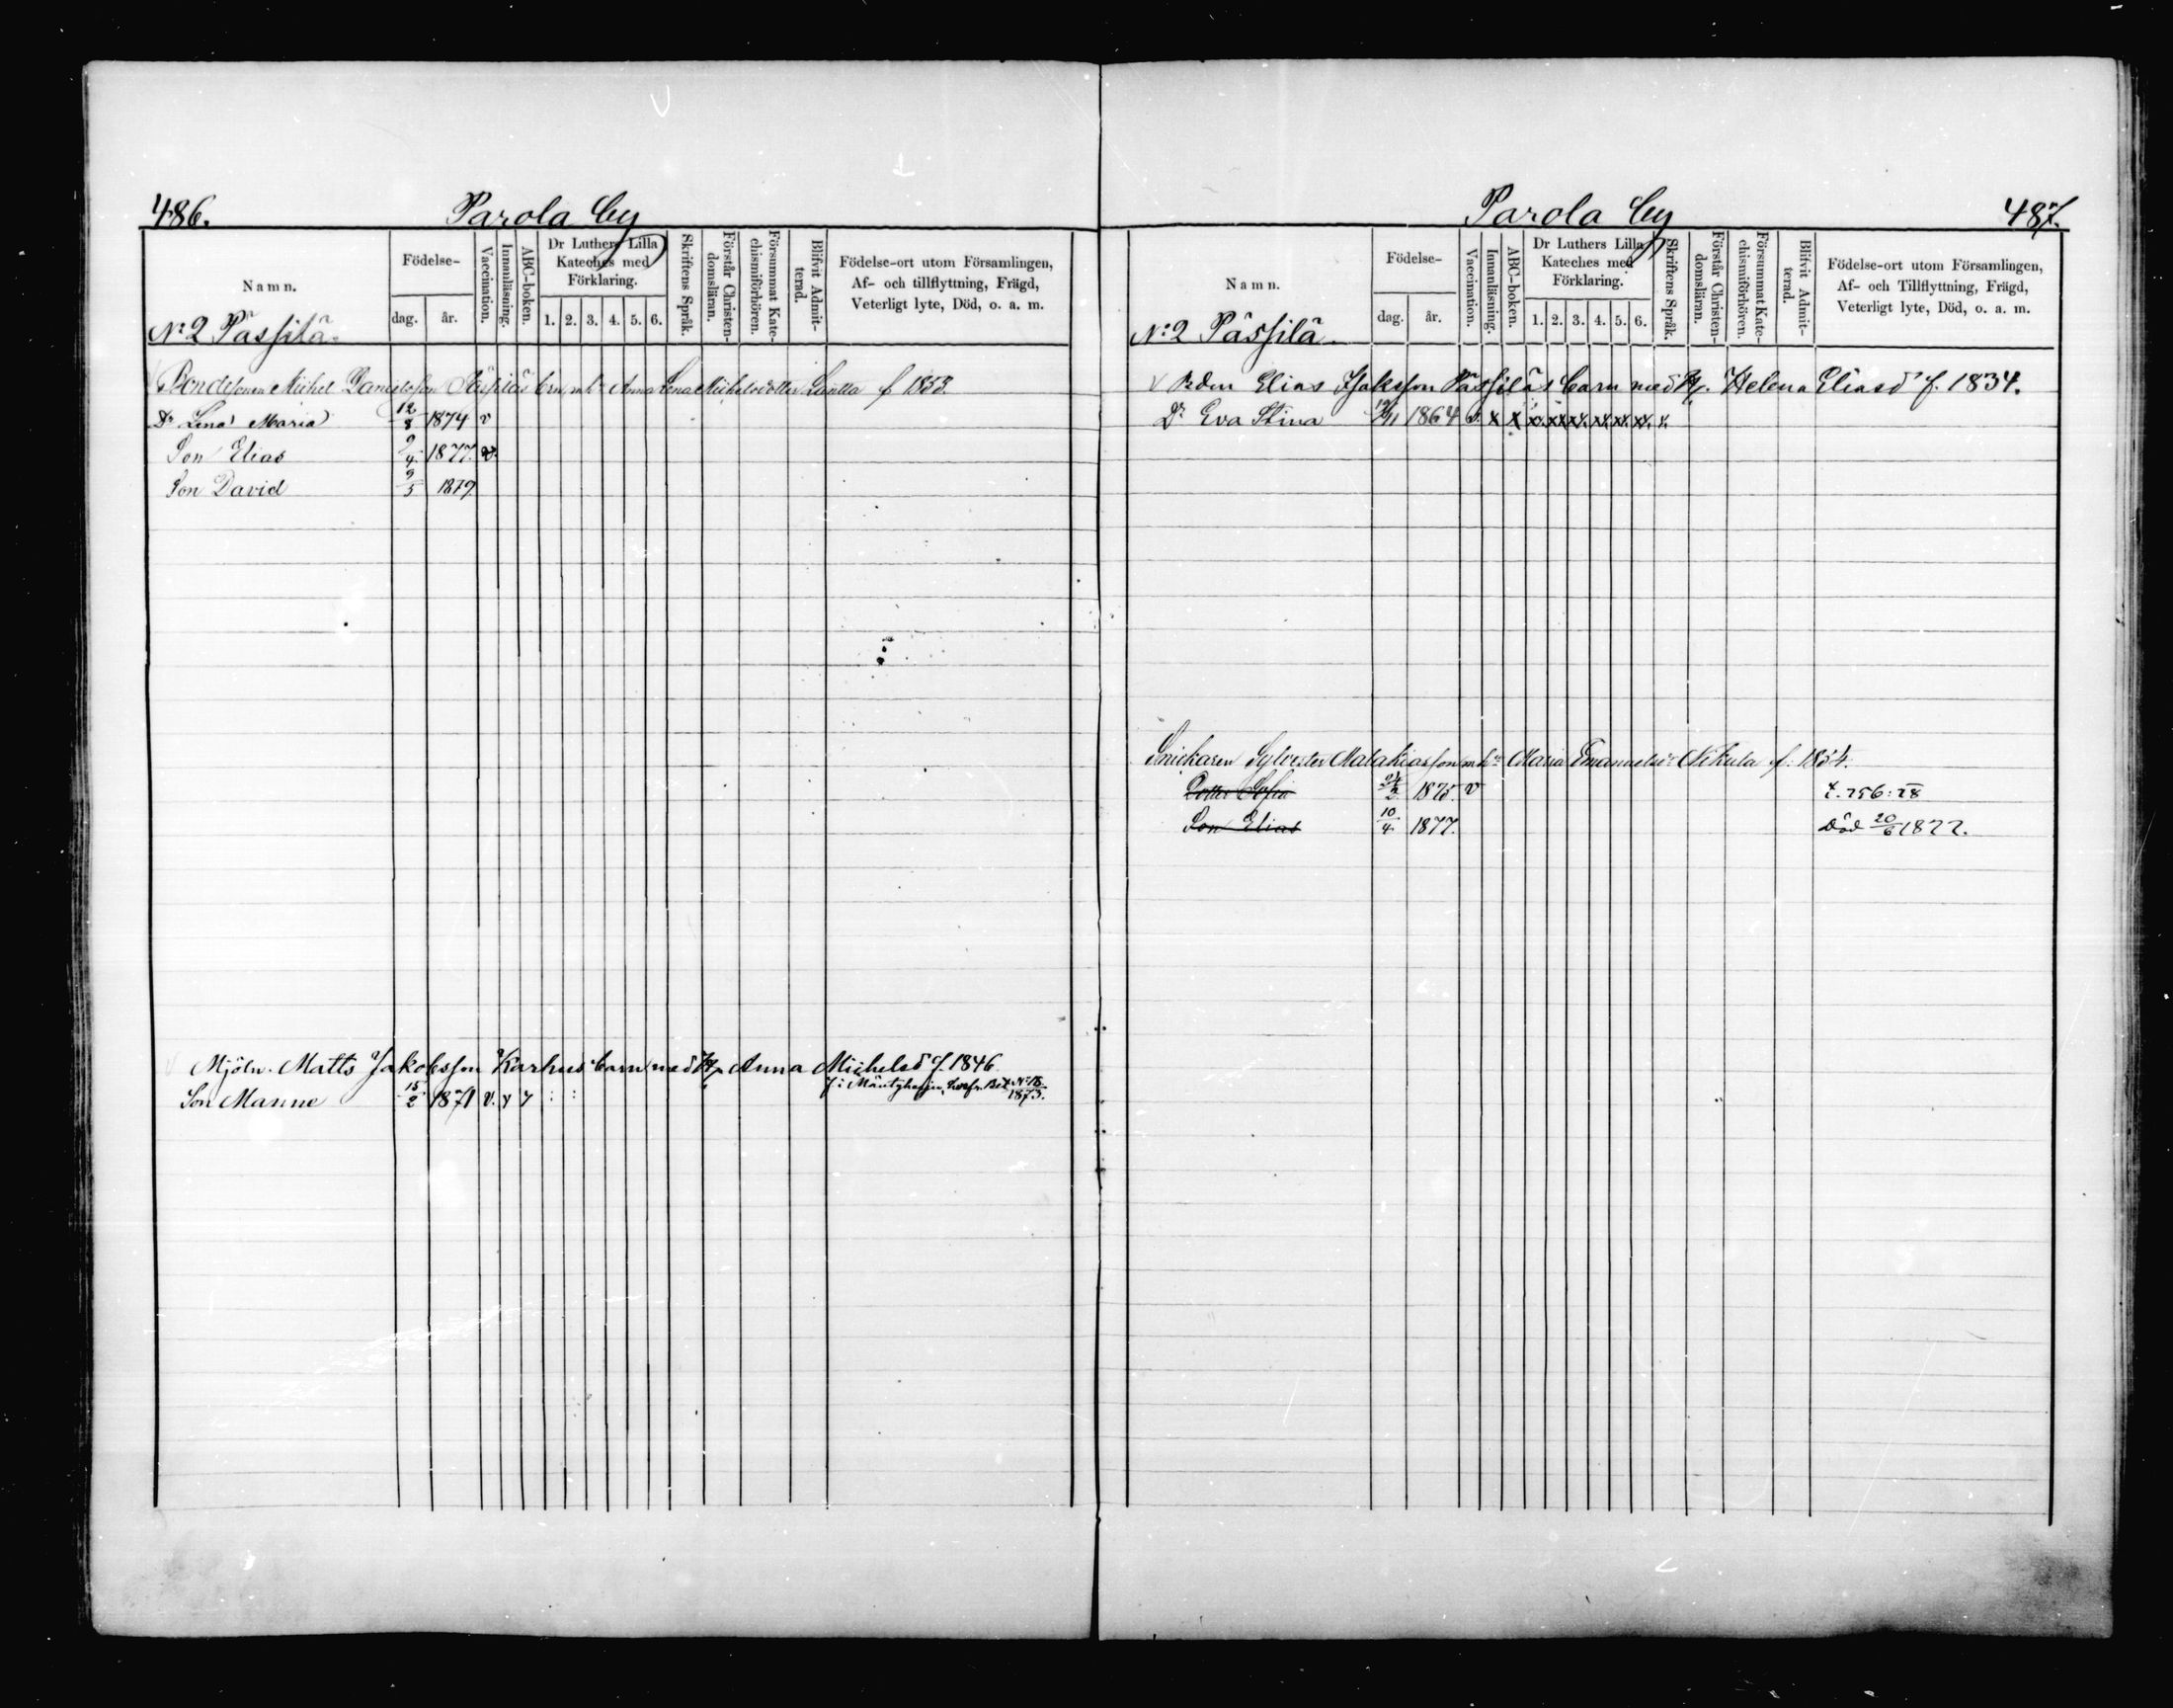 486. Parola by
Namn.
Födelse-
dag. år.
Vaccination.
Innanläsning.
ABC-boken.
Dr Luthers Lilla
Kateches med
Förklaring.
1. 2. 3. 4. 5. 6.
Skriftens Språk.
Förstår Christen-
domsläran.
Försummat Kate-
chismiförhören.
Blifvit Admit-
terad.
Födelse-ort utom Församlingen,
Af- och tillflyttning, Frägd,
Veterligt lyte, Död, o. a. m.
No 2 Pässilä.
Bondesonen Michel Danielsson Pässiläs brn m h Anna Lena Michelsdotter f 1853.
Dr Lena Maria 12/8 1874 v
Son Elias 9/4 1877. v.
Son David 9/5 1879
Mjöln. Matts Jakobsson Karhus barn med H. Anna Michelsd f. 1846
f. i Mäntyharju, Bet. No 18 1873.
Son Manne 15/2 1871 v. y y : :
Parola by 487.
Namn.
Födelse-
dag. år.
Vaccination.
Innanläsning.
ABC-boken.
Dr Luthers Lilla
Kateches med
Förklaring.
1. 2. 3. 4. 5. 6.
Skriftens Språk.
Förstår Christen-
domsläran.
Försummat Kate-
chismiförhören.
Blifvit Admit-
terad.
Födelse-ort utom Församlingen,
Af- och Tillflyttning, Frägd,
Veterligt lyte, Död, o. a. m.
No 2 Pässilä.
v Bden Elias Isaksson Pässiläs barn med H. Helena Eliasdr f. 1834.
Dr Eva Stina 1864 v. x x
Snickaren Sylvester Malakiasson m h Maria Emanuelsdr Nikula f. 1854.
Dotter Sofia 24/2 1875. v
Son Elias 10/4 1877. Död 20/6 1877.